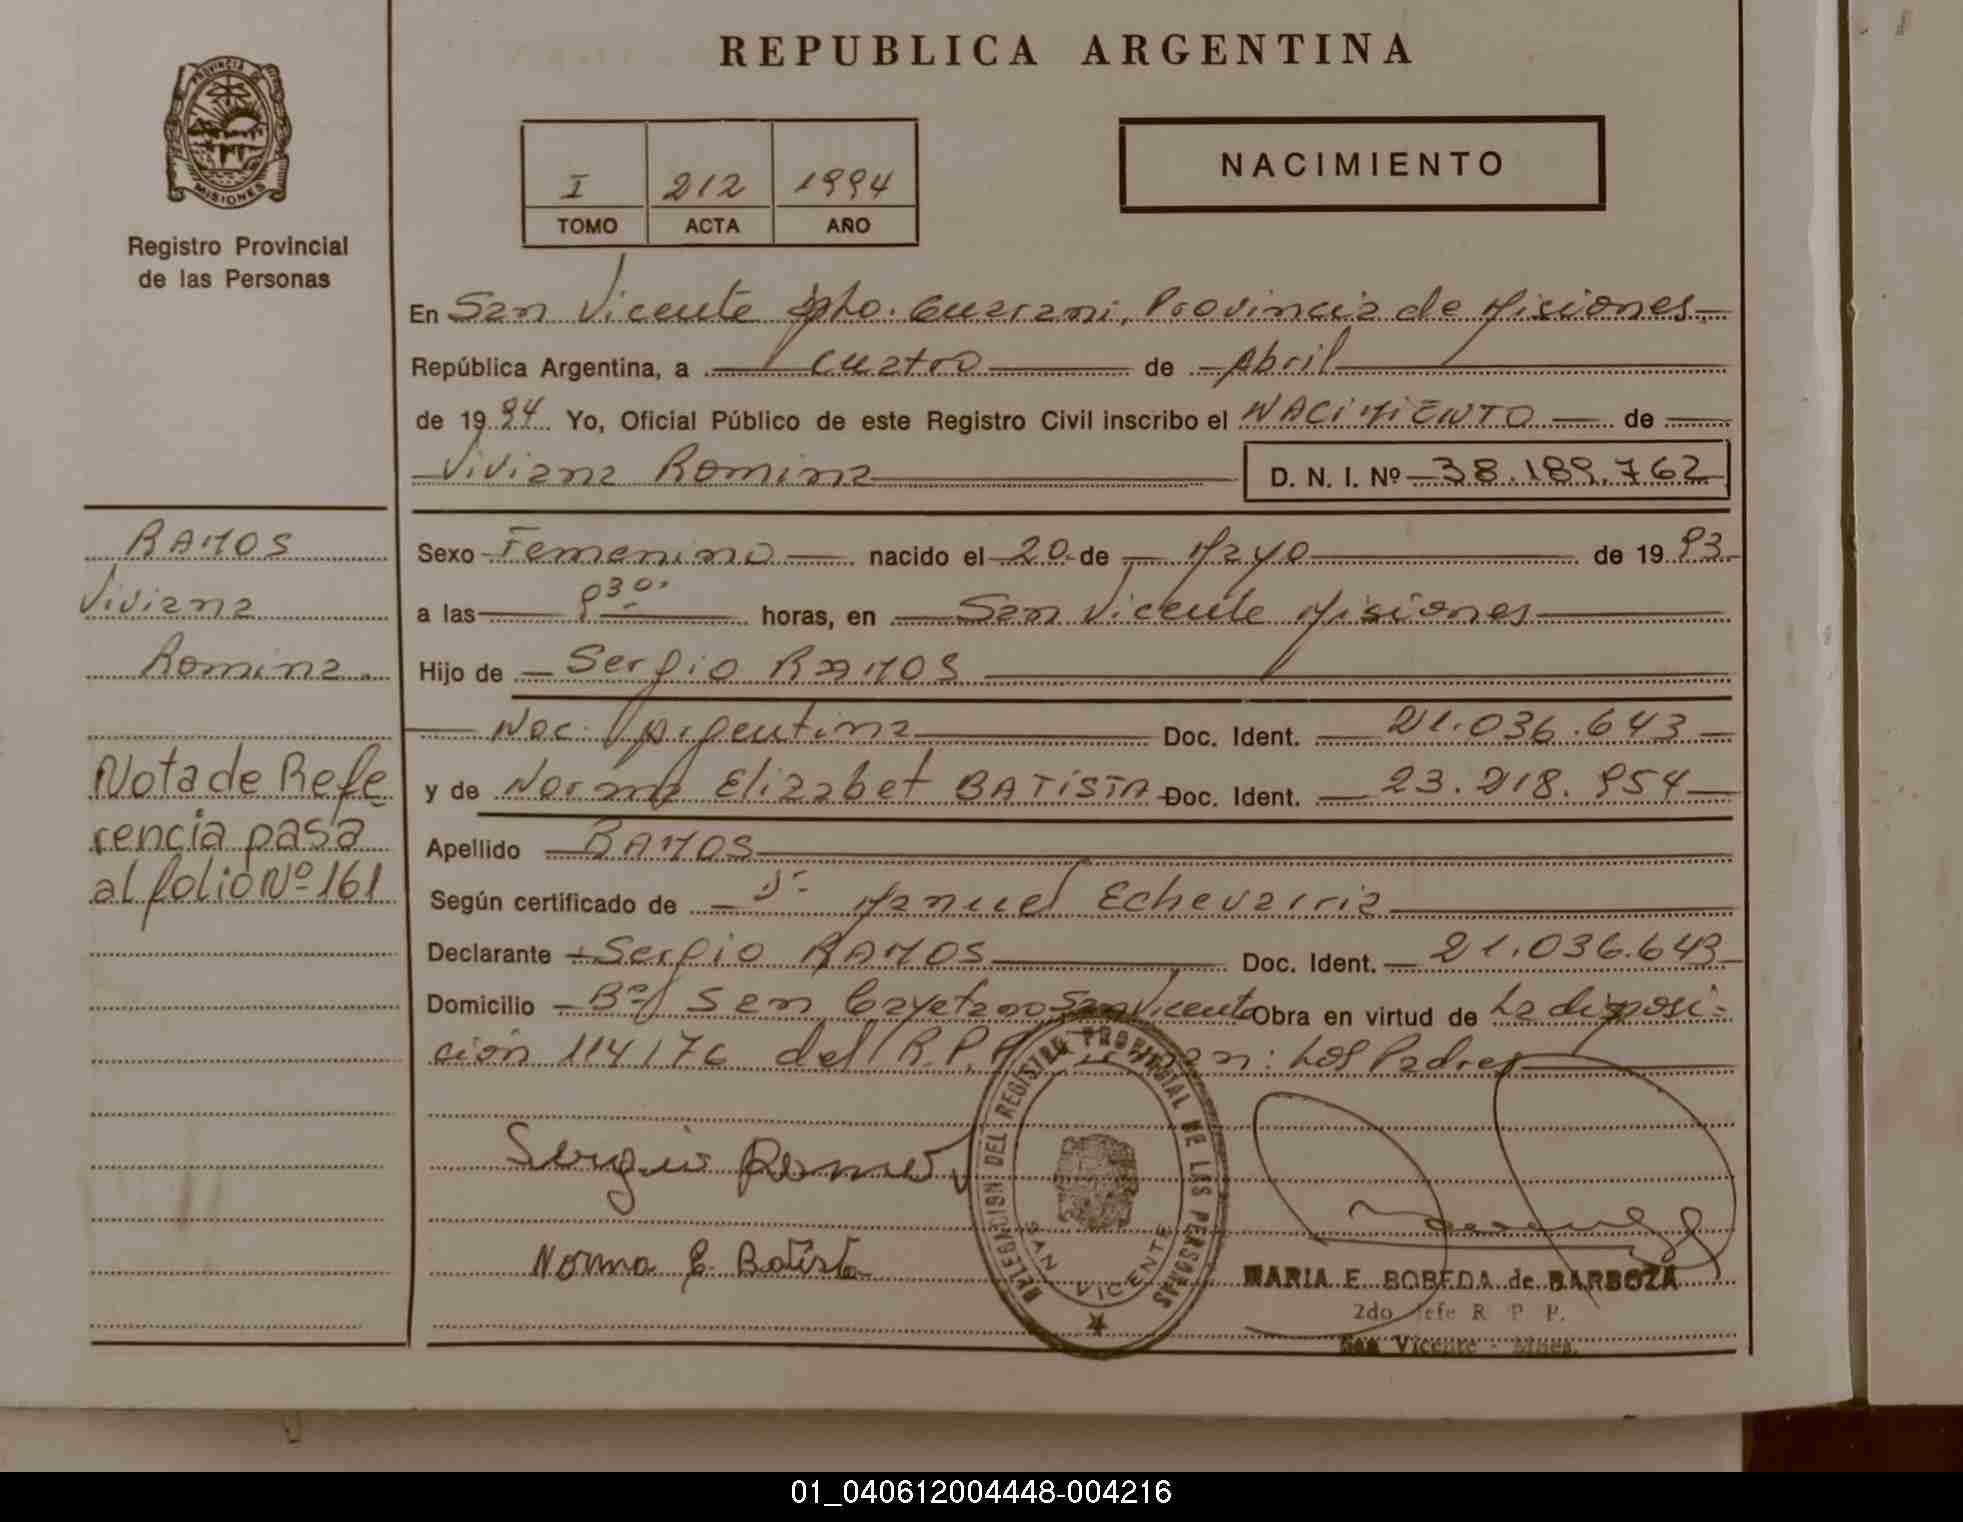 REPUBLICA ARGENTINA
PROVINCIA DE MISIONES
Registro Provincial
de las Personas
I 212 1994
TOMO ACTA AÑO
NACIMIENTO
En San Vicente Dpto. Guarani, Provincia de Misiones
República Argentina, a cuatro de Abril
de 1994 Yo, Oficial Público de este Registro Civil inscribo el NACIMIENTO de
Viviana Romina D. N. I. Nº 38.189.762
RAMOS
Viviana
Romina.
Nota de Refe
rencia pasa
al folio Nº 161
Sexo Femenino nacido el 20 de Mayo de 1993
a las 930. horas, en San Vicente Misiones
Hijo de Sergio RAMOS
Nac. Argentina Doc. Ident. 21.036.643
y de Norma Elizabet BATISTA Doc. Ident. 23.218.954
Apellido RAMOS
Según certificado de Dr Manuel Echevarria
Declarante Sergio RAMOS Doc. Ident. 21.036.643
Domicilio Bº San Cayetano San Vicente Obra en virtud de La disposi-
ción 114/76 del R.P.P. Firman: Los Padres
Sergio Ramos
Norma E. Batista
DELEGACION DEL REGISTRO PROVINCIAL DE LAS PERSONAS
SAN VICENTE
MARIA E. BOBEDA de BARBOZA
2do Jefe R. P. P.
San Vicente - Mnes.
01_040612004448-004216